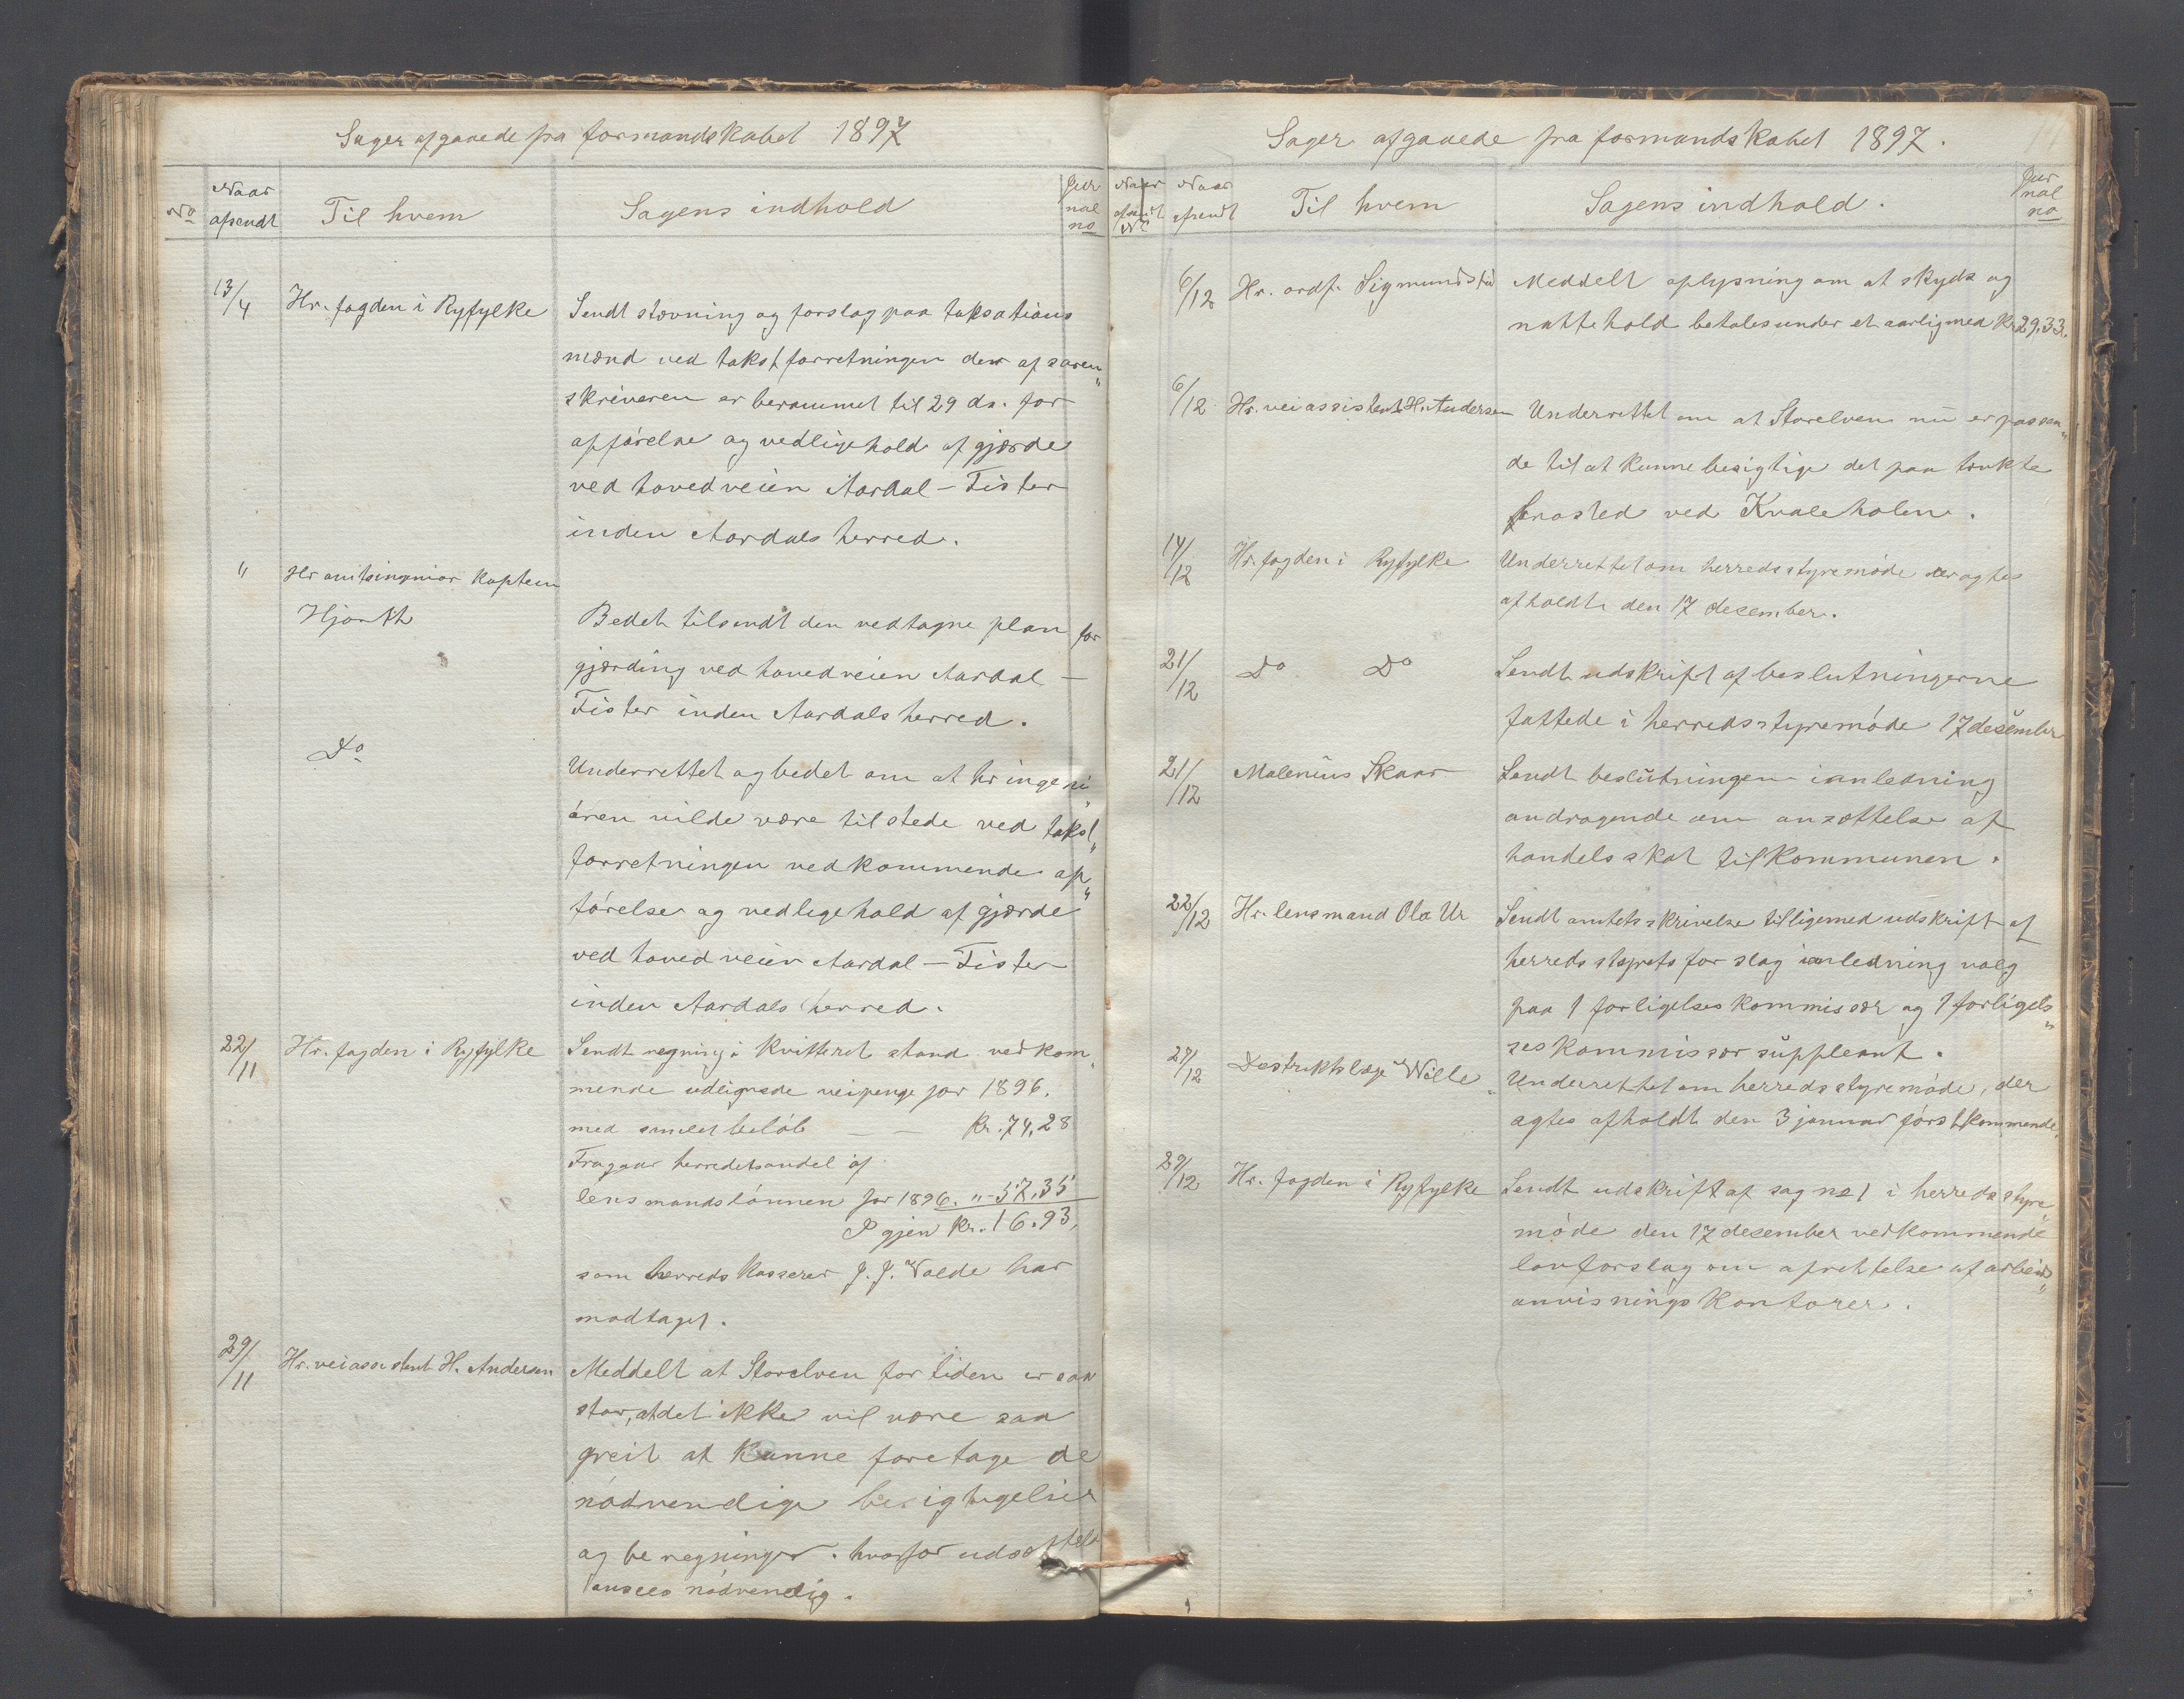 Sager afgaaede fra formandskabet 1897
No
Naar afsendt
Til hvem
Sagens indhold
Jur nal no
13/4 Hr. fogden i Ryfylke
Sendt stævning og forslag paa taksations
mænd ved takstforretningen der af soren„
skriveren er berammet til 29 ds. for
opførelse og vedligehold af gjærde
ved hovedveien Aardal – Fister
inden Aardals herred.
" Hr amtsingeniør Kaptein
Hjorth
Bedet tilsendt den vedtagne plan for
gjærding ved hovedveien Aardal –
Fister inden Aardals herred.
Do
Underrettet og bedet om at hr ingeni„
øren vilde være tilstede ved takst„
forretningen vedkommende op„
førelse og vedligehold af gjærde
ved hovedveien Aardal – Fister
inden Aardals herred.
22/11 Hr. fogden i Ryfylke
Sendt regning i kvitteret stand vedkom„
mende udlignede veipenge for 1896.
med samlet beløb — — Kr. 74,28
Fragaar herredets andel af
lensmandslønnen for 1896. " - 57,35
Igjen Kr. 16.93,
som herredskasserer J. J. Valde har
modtaget.
29/11 Hr. veiassistent H. Andersen
Meddelt at Storelven for tiden er saa
stor, at det ikke vil være saa
greit at kunne foretage de
nødvendige besigtigelser
og beregninger. hvorfor udsættelse
ansees nødvendig.
Sager afgaaede fra formandskabet 1897.
Naar afsendt No
Naar afsendt
Til hvem
Sagens indhold.
Jur nal no
6/12 Hr. ordf. Sigmundstad
Meddelt oplysning om at skyds og
nattehold betales under et aarlig med Kr 29.33.
6/12 Hr. veiassistent H. Andersen
Underrettet om at Storelven nu er passen„
de til at kunne besigtige det paa tænkte
brosted ved Kvaleholen.
14/12 Hr. fogden i Ryfylke
Underrettet om herredsstyremøde der agtes
afholdt den 17 desember.
21/12 Do Do
Sendt udskrift af beslutningerne
fattede i herredsstyremøde 17 desember
21/12 Malenius Skaar
Sendt beslutningen ianledning
andragende om ansættelse af
handelsskat til kommunen.
22/12 Hr. lensmand Ola Ur
Sendt amtets skrivelse tilligemed udskrift af
herredsstyrets forslag ianledning valg
paa 1 forligelseskommissær og 1 forligel„
seskommissær suppleant.
27/12 Destriktslæge Wille
Underrettet om herredsstyremøde, der
agtes afholdt den 3 januar førstkommende.
29/12 Hr. fogden i Ryfylke
Sendt udskrift af sag no 1 i herredsstyre„
møde den 17 desember vedkommende
lovforslag om oprettelse af arbeids„
anvisningskontorer.